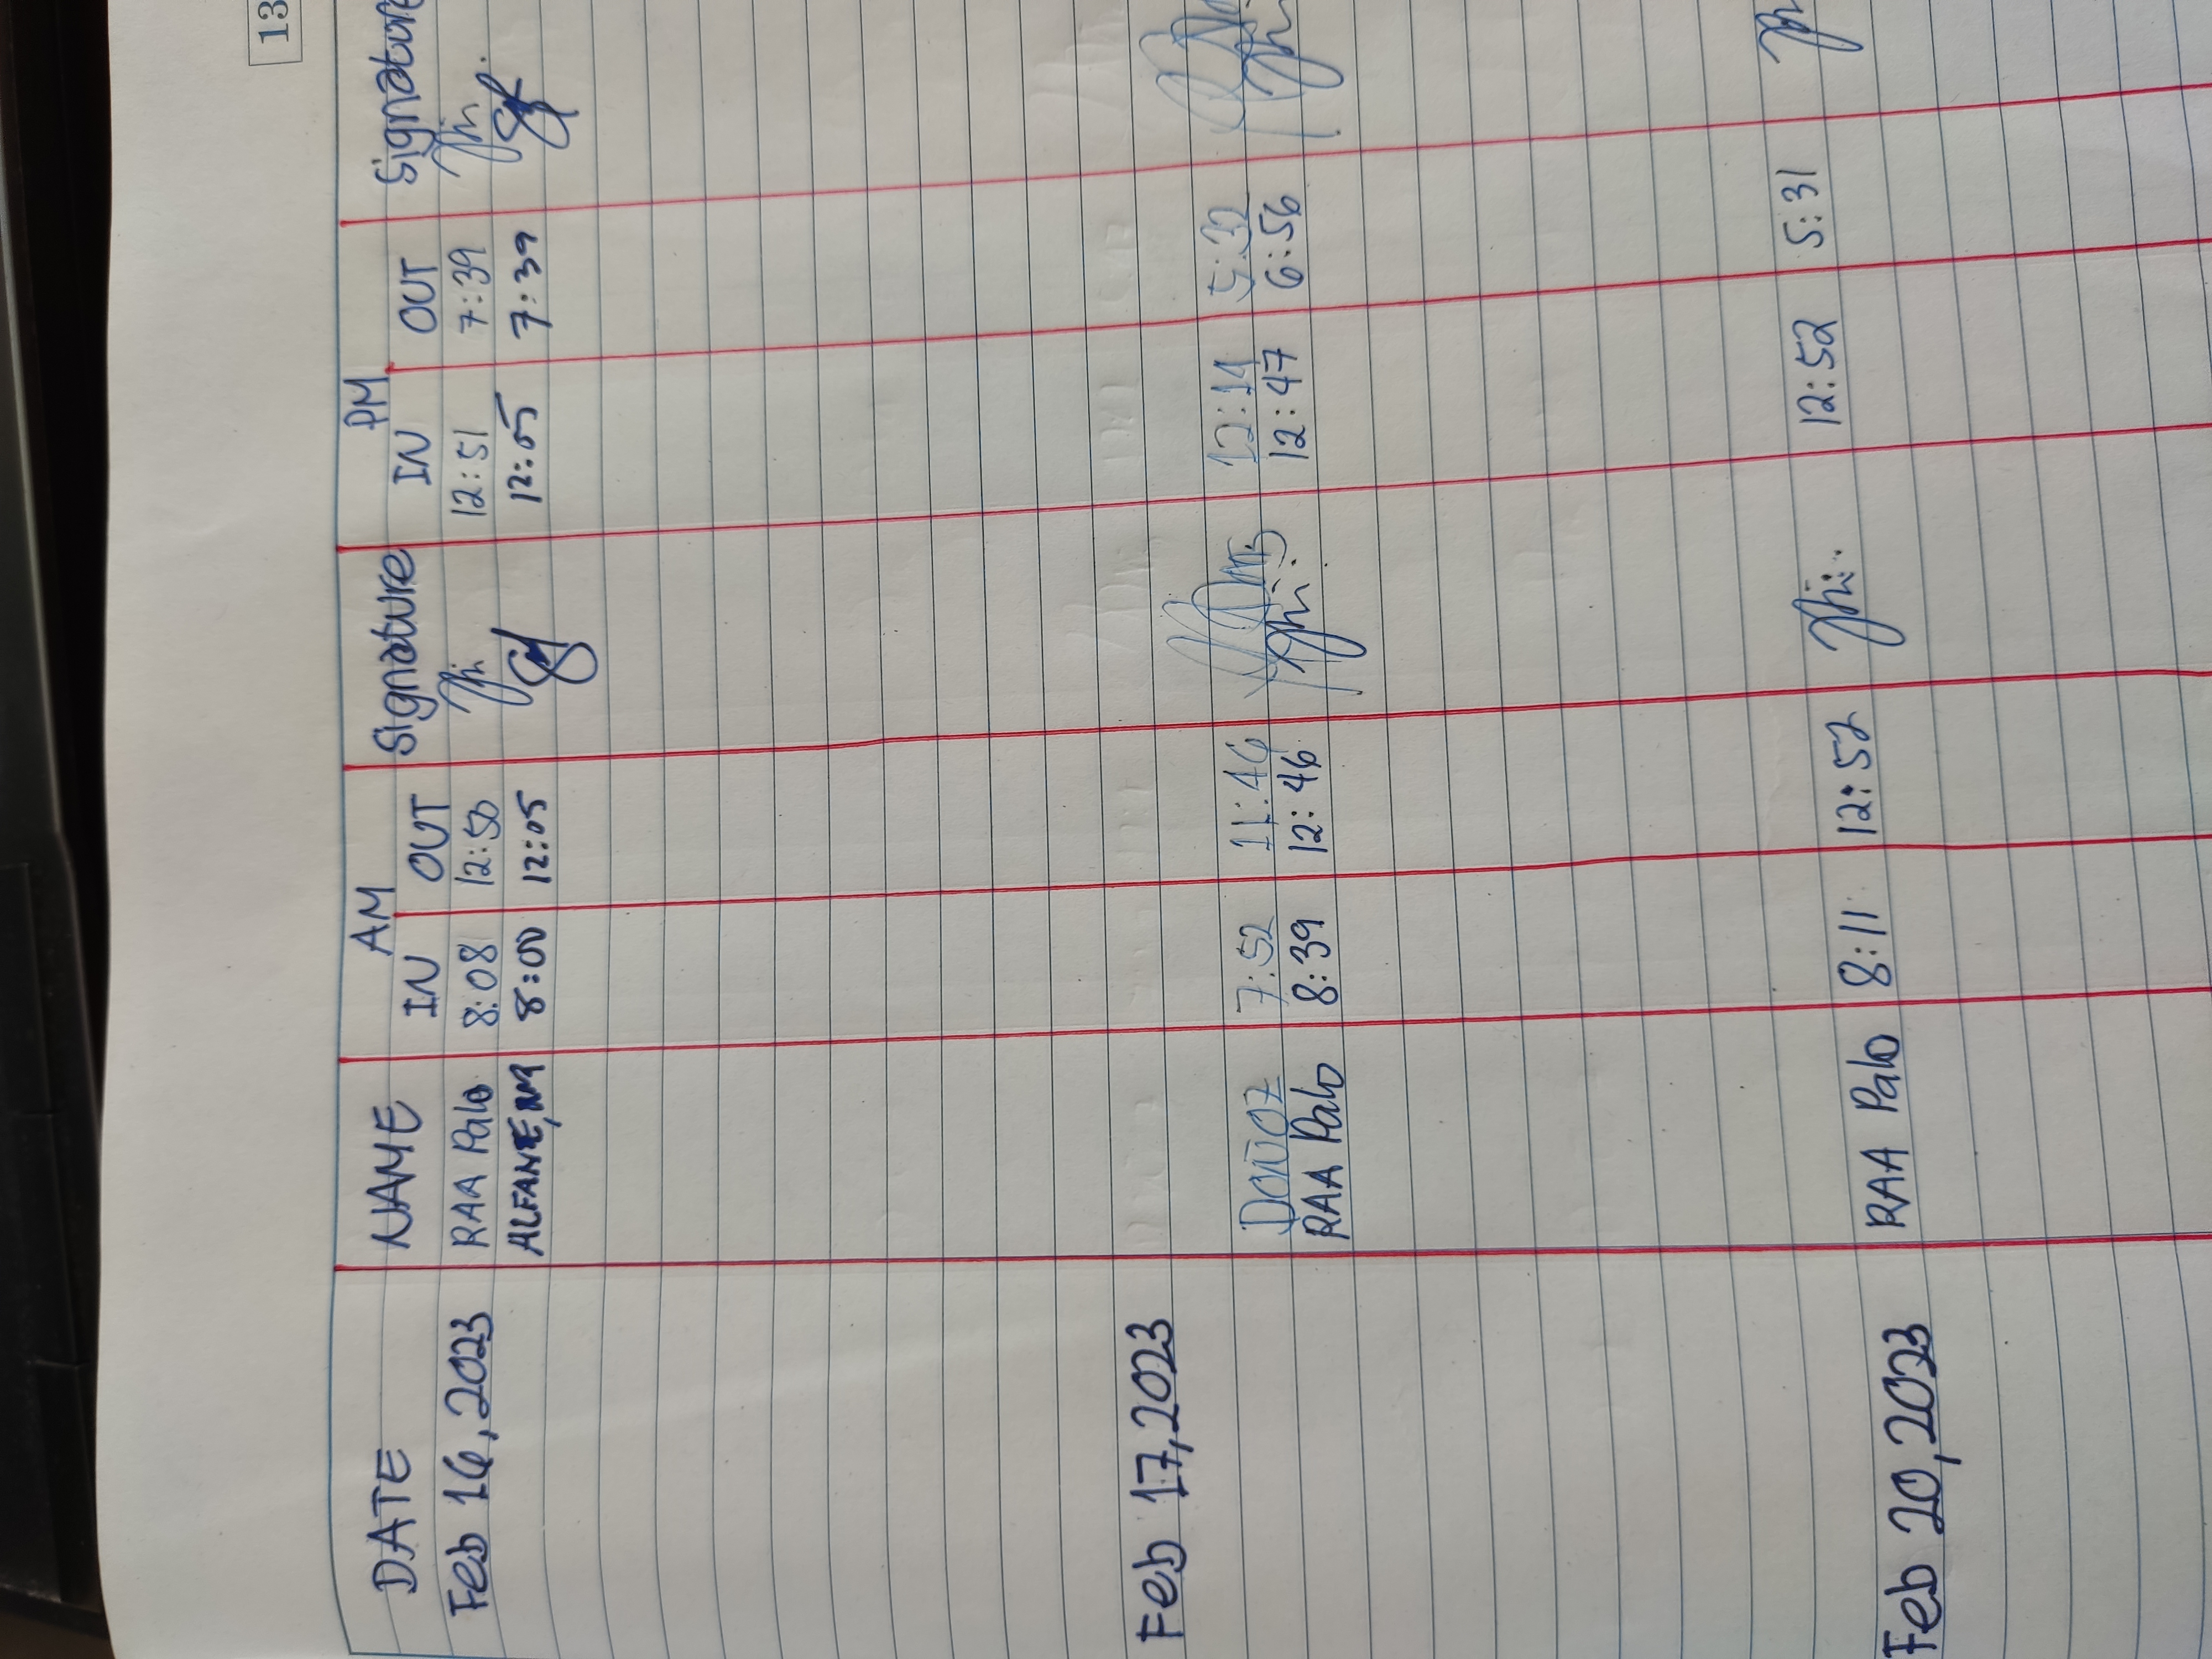 13
DATE NAME AM PM
IN OUT Signature IN OUT Signature
Feb 16, 2023 RAA Palo 8:08 12:50 12:51 7:39
ALFANE, NM 8:00 12:05 12:05 7:39
Feb 17, 2023
7:52 11:46 12:14 5:32
RAA Palo 8:39 12:46 12:47 6:56
Feb 20, 2023 RAA Palo 8:11 12:52 12:52 5:31